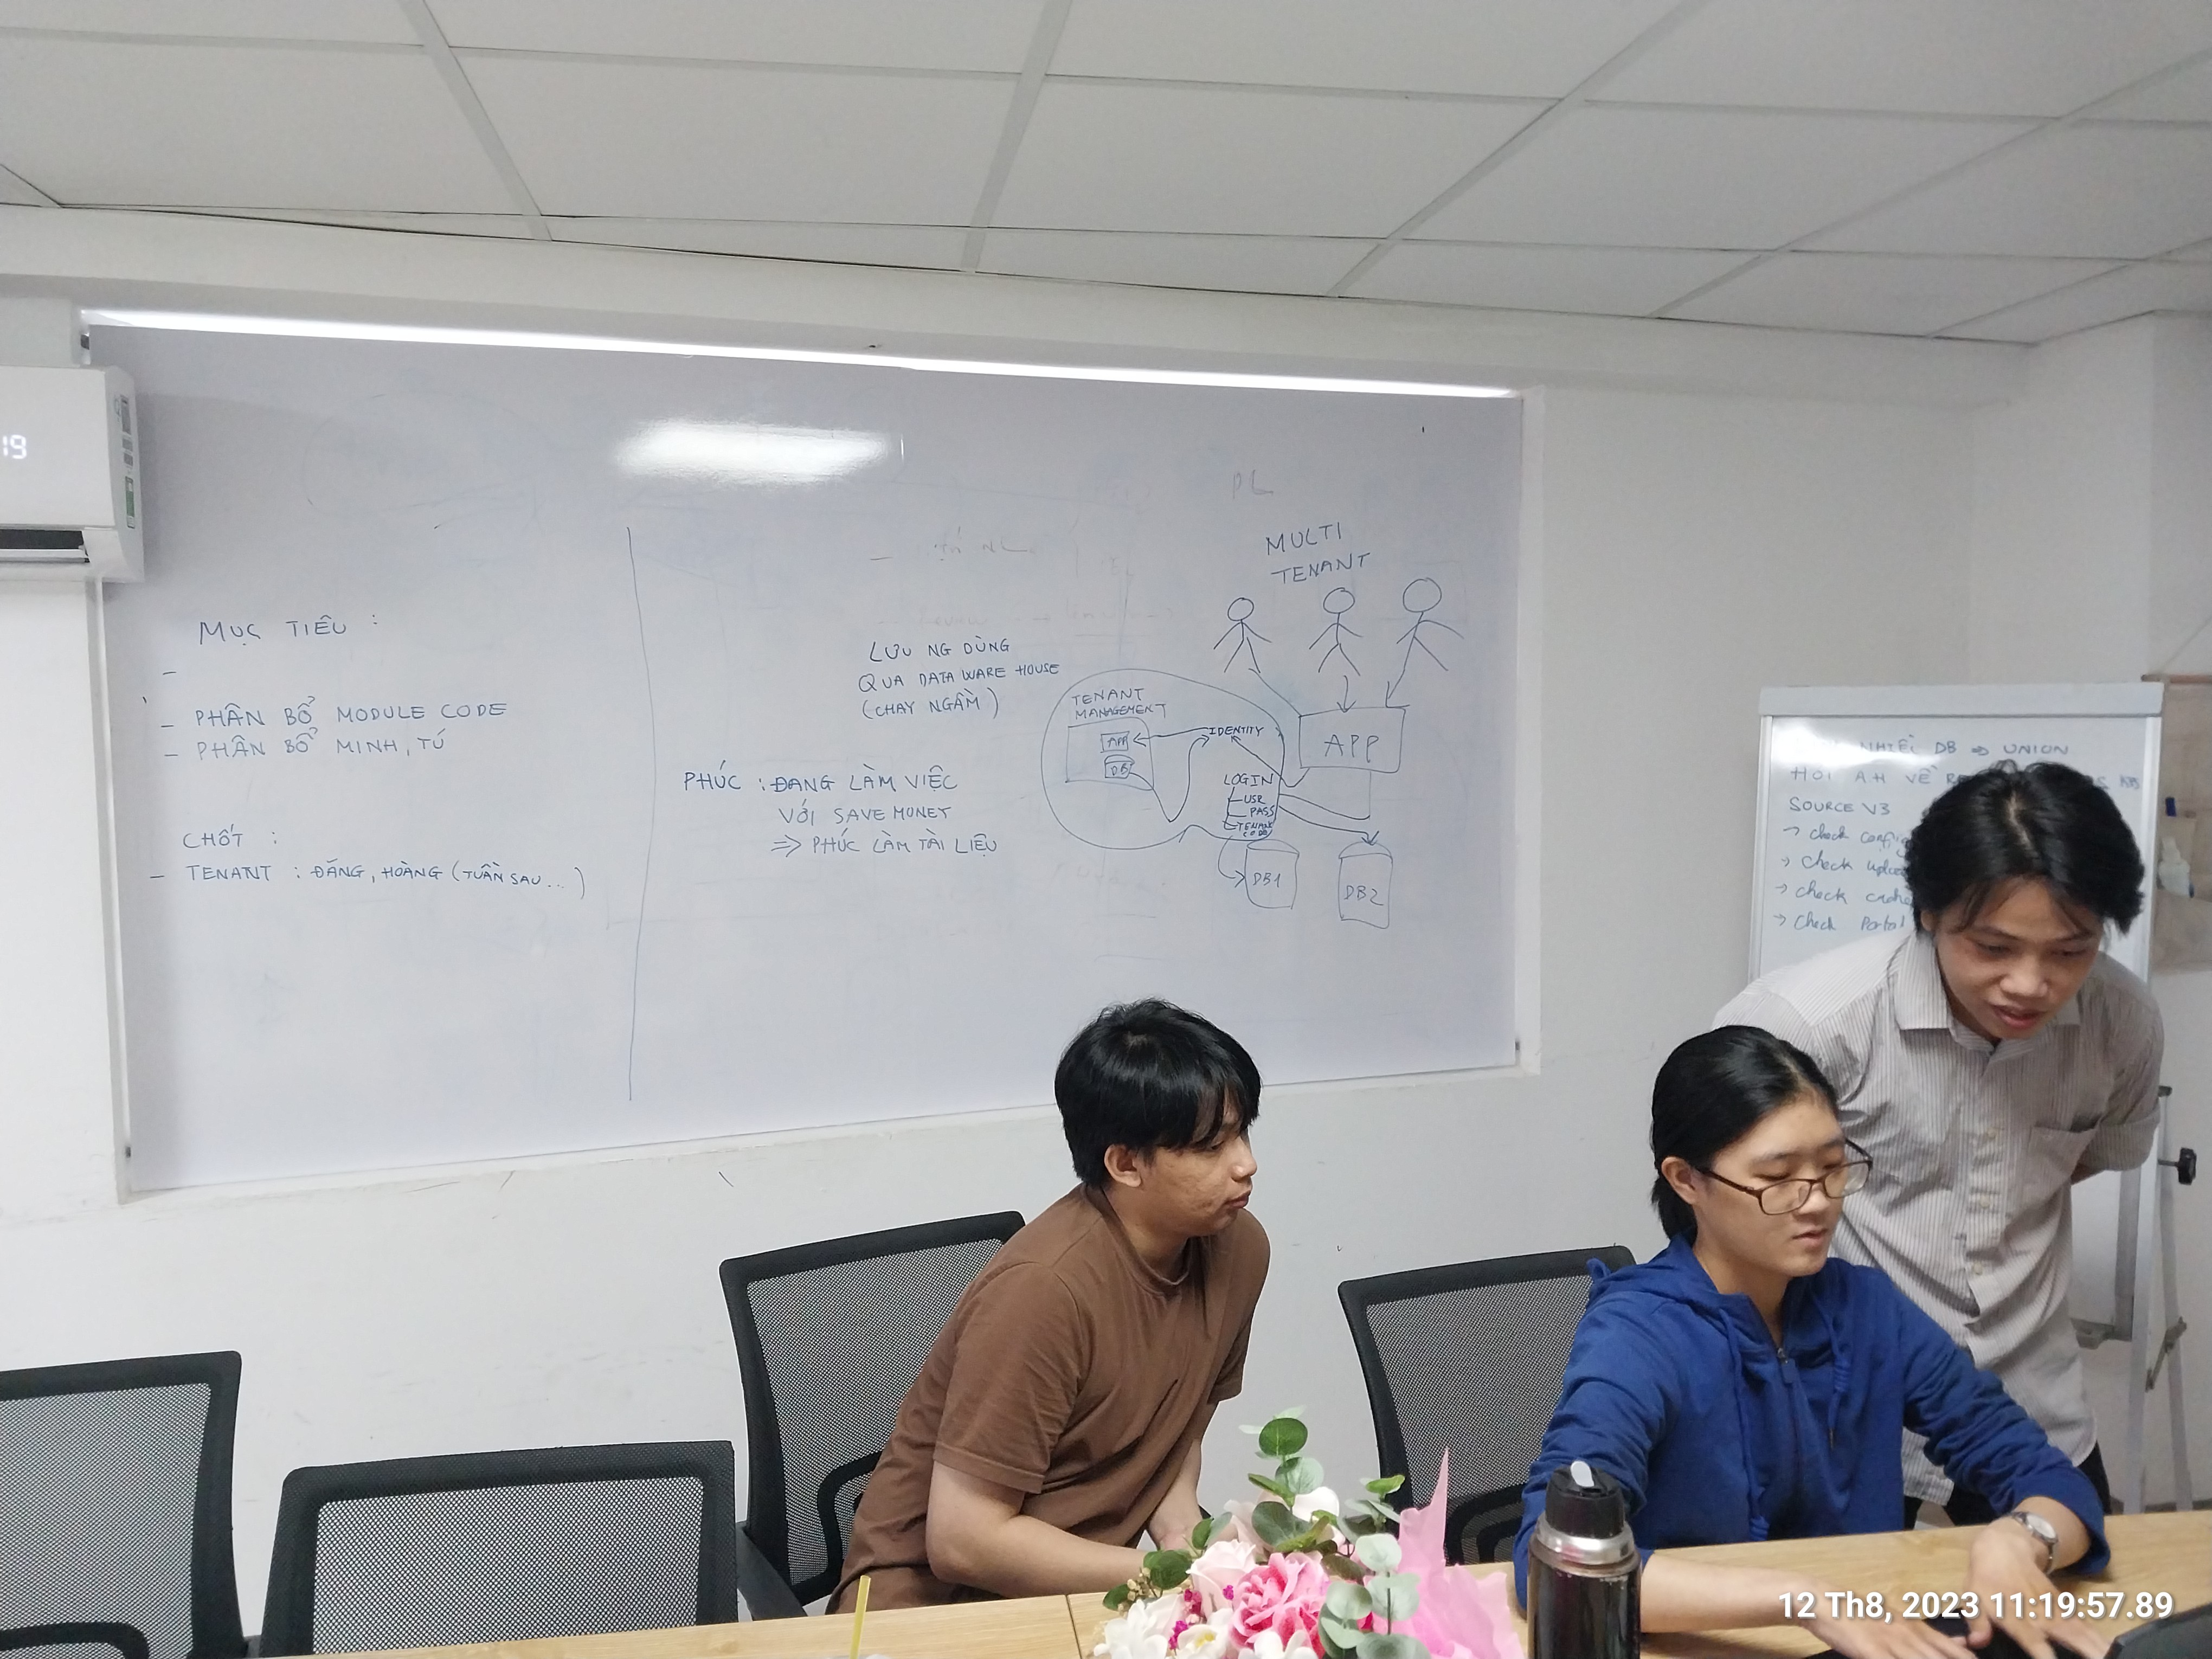 19
MỤC TIÊU :
-
- PHÂN BỔ MODULE CODE
- PHÂN BỔ MINH, TÚ
CHỐT :
- TENANT : ĐĂNG, HOÀNG (TUẦN SAU...)
LƯU NG DÙNG
QUA DATA WARE HOUSE
(CHẠY NGẦM)
PHÚC : ĐANG LÀM VIỆC
VỚI SAVE MONEY
=> PHÚC LÀM TÀI LIỆU
PL
MULTI
TENANT
TENANT
MANAGEMENT
APP
DB
IDENTITY
APP
LOGIN
USR
PASS
TENANT
CODE
DB1
DB2
NHIỀU DB => UNION
HỎI A.H VỀ
SOURCE V3
→ check config
→ check
→ check
→ check Portal
12 Th8, 2023 11:19:57.89